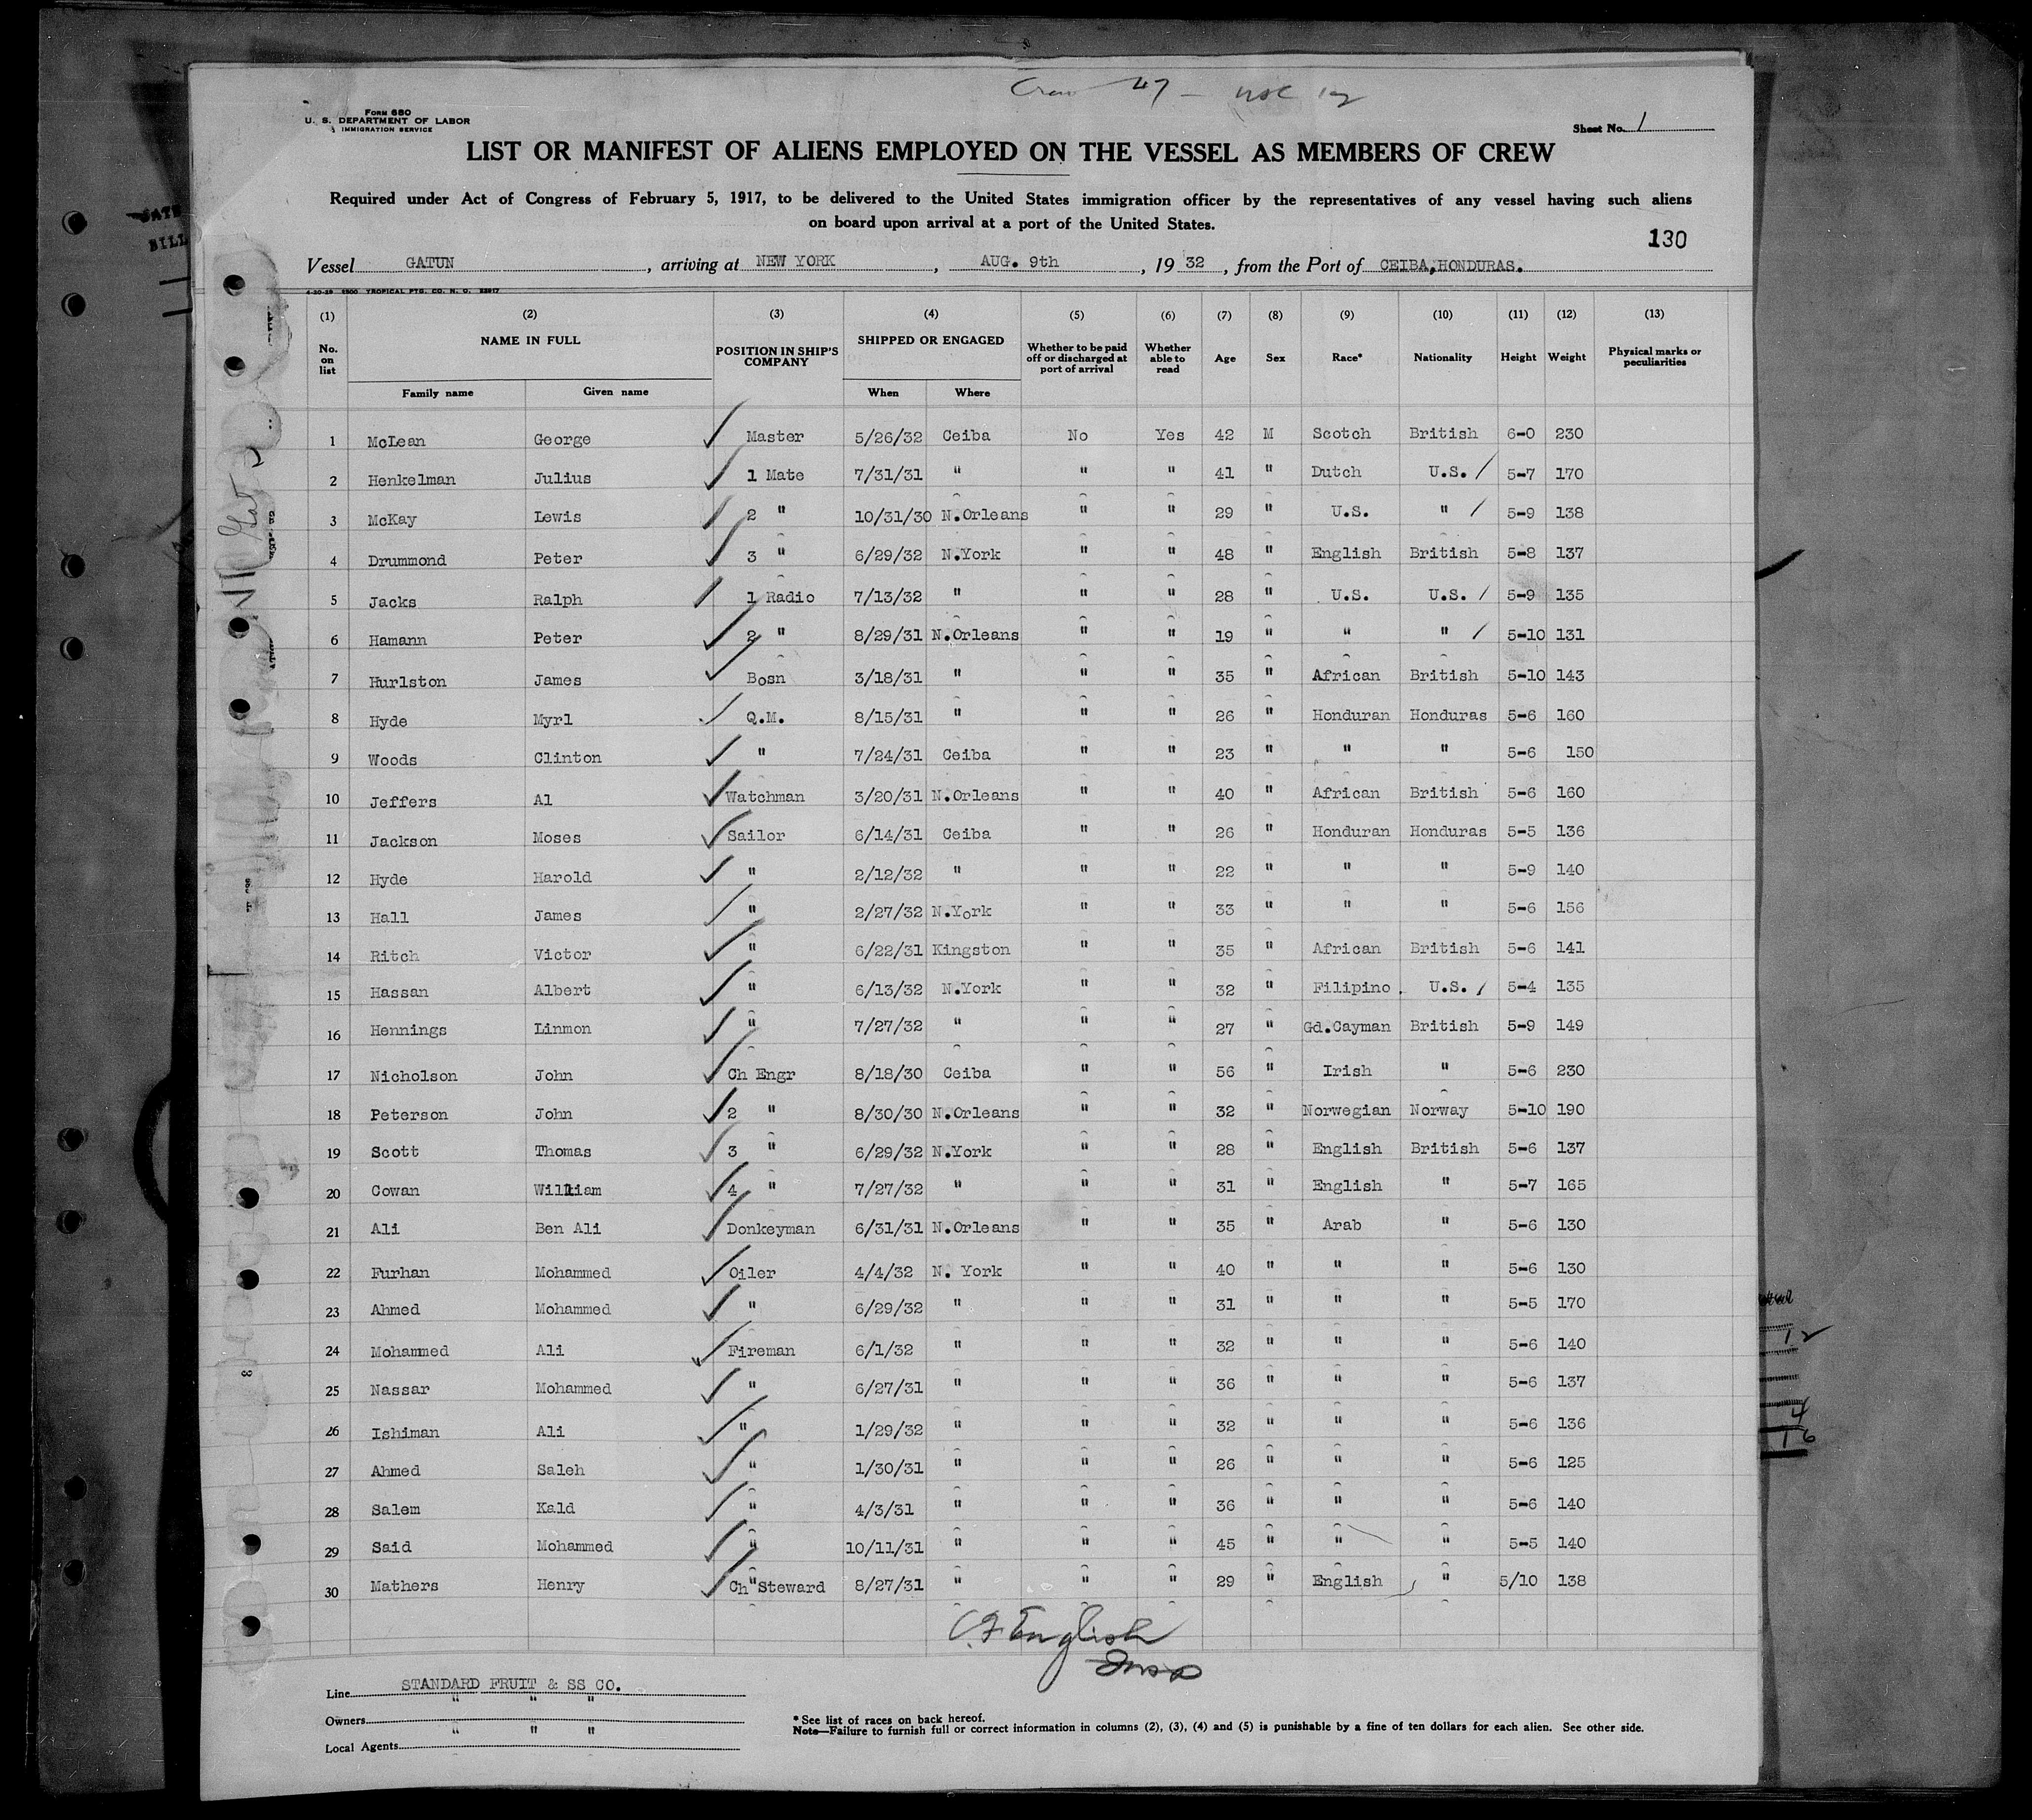 Crew 47 - USC 12
Form 680
U. S. DEPARTMENT OF LABOR
IMMIGRATION SERVICE
Sheet No. 1
LIST OR MANIFEST OF ALIENS EMPLOYED ON THE VESSEL AS MEMBERS OF CREW
Required under Act of Congress of February 5, 1917, to be delivered to the United States immigration officer by the representatives of any vessel having such aliens
on board upon arrival at a port of the United States.
130
Vessel GATUN, arriving at NEW YORK, AUG. 9th, 19 32, from the Port of CEIBA, HONDURAS.
(1) (2) (3) (4) (5) (6) (7) (8) (9) (10) (11) (12) (13)
No. on list NAME IN FULL POSITION IN SHIP'S COMPANY SHIPPED OR ENGAGED Whether to be paid off or discharged at port of arrival Whether able to read Age Sex Race* Nationality Height Weight Physical marks or peculiarities
Family name Given name When Where
1 McLean George Master 5/26/32 Ceiba No Yes 42 M Scotch British 6-0 230
2 Henkelman Julius 1 Mate 7/31/31 " " " 41 " Dutch U.S. 5-7 170
3 McKay Lewis 2 " 10/31/30 N.Orleans " " 29 " U.S. " 5-9 138
4 Drummond Peter 3 " 6/29/32 N.York " " 48 " English British 5-8 137
5 Jacks Ralph 1 Radio 7/13/32 " " " 28 " U.S. U.S. 5-9 135
6 Hamann Peter 2 " 8/29/31 N.Orleans " " 19 " " " 5-10 131
7 Hurlston James Bosn 3/18/31 " " " 35 " African British 5-10 143
8 Hyde Myrl Q.M. 8/15/31 " " " 26 " Honduran Honduras 5-6 160
9 Woods Clinton " 7/24/31 Ceiba " " 23 " " " 5-6 150
10 Jeffers Al Watchman 3/20/31 N.Orleans " " 40 " African British 5-6 160
11 Jackson Moses Sailor 6/14/31 Ceiba " " 26 " Honduran Honduras 5-5 136
12 Hyde Harold " 2/12/32 " " " 22 " " " 5-9 140
13 Hall James " 2/27/32 N.York " " 33 " " " 5-6 156
14 Ritch Victor " 6/22/31 Kingston " " 35 " African British 5-6 141
15 Hassan Albert " 6/13/32 N.York " " 32 " Filipino U.S. 5-4 135
16 Hennings Linmon " 7/27/32 " " " 27 " Gd.Cayman British 5-9 149
17 Nicholson John Ch Engr 8/18/30 Ceiba " " 56 " Irish " 5-6 230
18 Peterson John 2 " 8/30/30 N.Orleans " " 32 " Norwegian Norway 5-10 190
19 Scott Thomas 3 " 6/29/32 N.York " " 28 " English British 5-6 137
20 Cowan William 4 " 7/27/32 " " " 31 " English " 5-7 165
21 Ali Ben Ali Donkeyman 6/31/31 N.Orleans " " 35 " Arab " 5-6 130
22 Furhan Mohammed Oiler 4/4/32 N. York " " 40 " " " 5-6 130
23 Ahmed Mohammed " 6/29/32 " " " 31 " " " 5-5 170
24 Mohammed Ali Fireman 6/1/32 " " " 32 " " " 5-6 140
25 Nassar Mohammed " 6/27/31 " " " 36 " " " 5-6 137
26 Ishiman Ali " 1/29/32 " " " 32 " " " 5-6 136
27 Ahmed Saleh " 1/30/31 " " " 26 " " " 5-6 125
28 Salem Kald " 4/3/31 " " " 36 " " " 5-6 140
29 Said Mohammed " 10/11/31 " " " 45 " " " 5-5 140
30 Mathers Henry Ch Steward 8/27/31 " " " 29 " English " 5/10 138
C.F. English
Insp
Line STANDARD FRUIT & SS CO.
Owners " " "
Local Agents " " "
* See list of races on back hereof.
Note—Failure to furnish full or correct information in columns (2), (3), (4) and (5) is punishable by a fine of ten dollars for each alien. See other side.
12
4
16